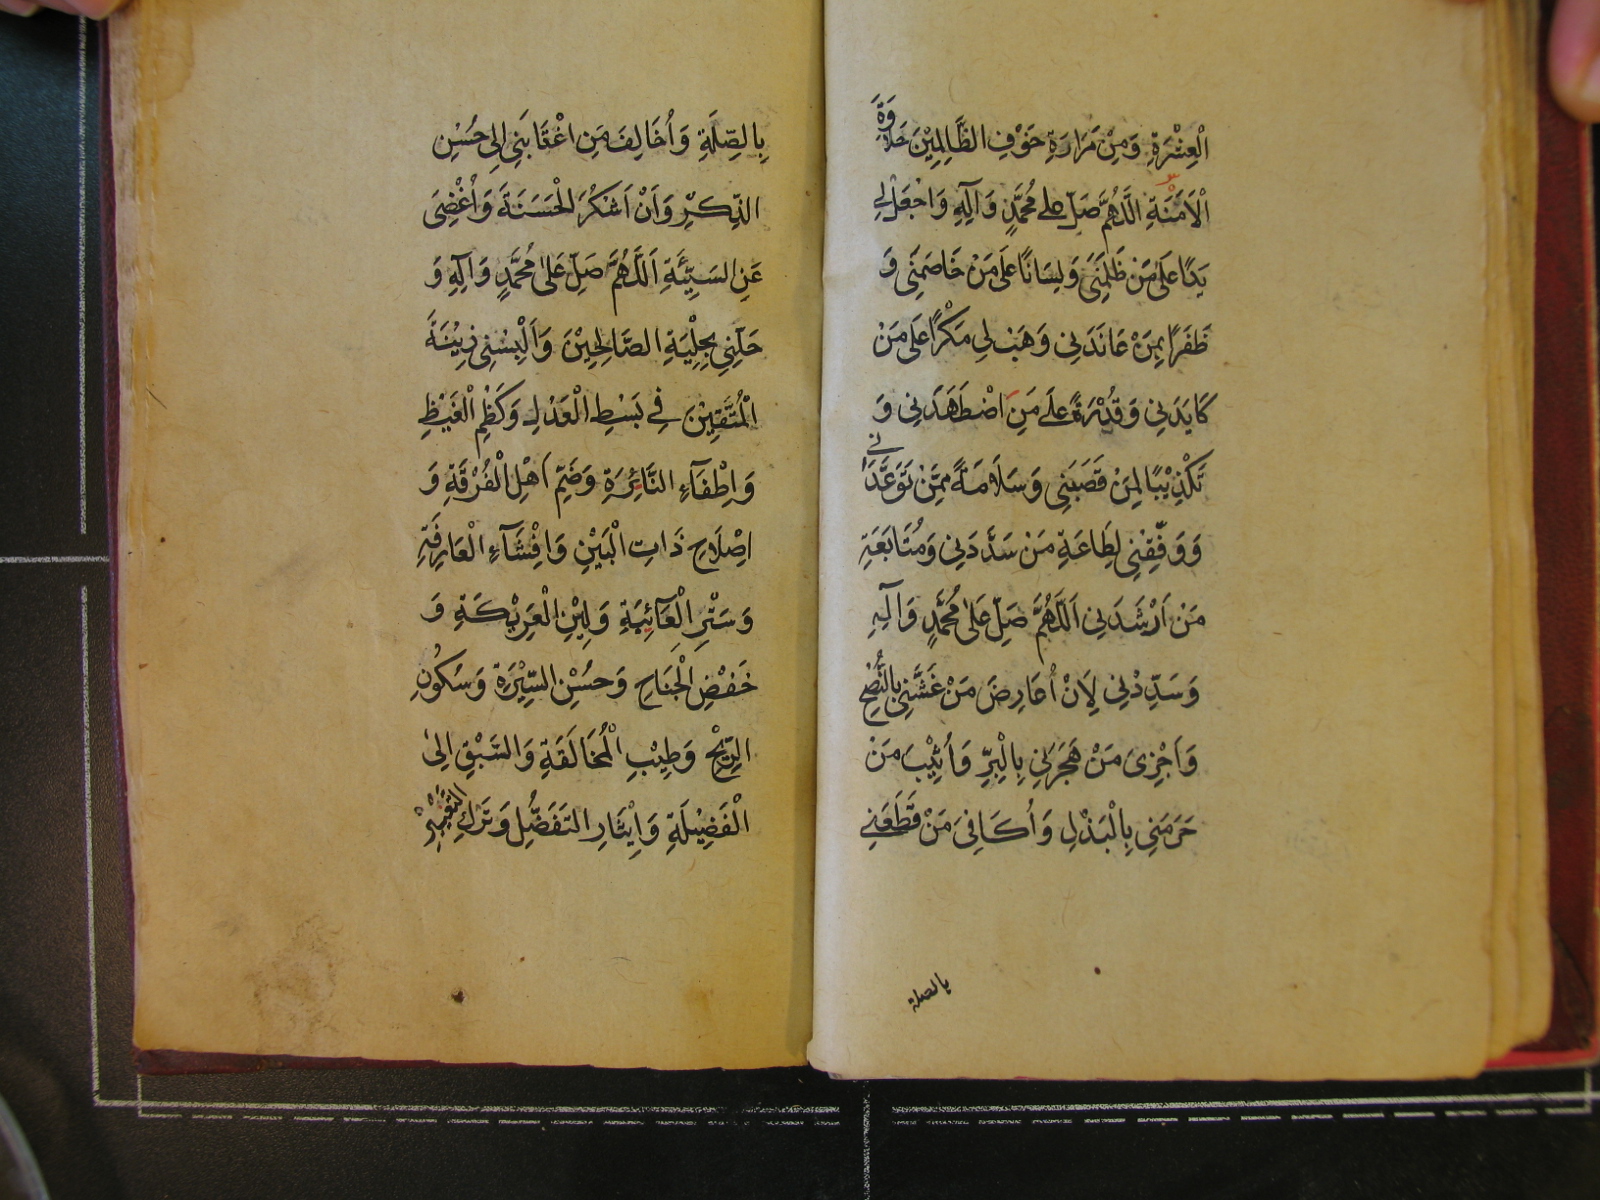 الْعِشْرَةِ وَمِنْ مَرَارَةِ خَوْفِ الظَّالِمِيْنَ حَلَاوَةَ
الْاَمَنَةِ اَللّٰهُمَّ صَلِّ عَلٰى مُحَمَّدٍ وَآلِهِ وَاجْعَلْ لِي
يَدًا عَلٰى مَنْ ظَلَمَنِي وَلِسَانًا عَلٰى مَنْ خَاصَمَنِي وَ
ظَفَرًا بِمَنْ عَانَدَنِي وَهَبْ لِي مَكْرًا عَلٰى مَنْ
كَايَدَنِي وَقُدْرَةً عَلٰى مَنِ اضْطَهَدَنِي وَ
تَكْذِيْبًا لِمَنْ قَصَبَنِي وَسَلَامَةً مِمَّنْ تَوَعَّدَنِي
وَ وَفِّقْنِي لِطَاعَةِ مَنْ سَدَّدَنِي وَمُتَابَعَةِ
مَنْ اَرْشَدَنِي اَللّٰهُمَّ صَلِّ عَلٰى مُحَمَّدٍ وَآلِهِ
وَسَدِّدْنِي لِاَنْ اُعَارِضَ مَنْ غَشَّنِي بِالنُّصْحِ
وَاَجْزِيَ مَنْ هَجَرَنِي بِالْبِرِّ وَاُثِيْبَ مَنْ
حَرَمَنِي بِالْبَذْلِ وَاُكَافِيَ مَنْ قَطَعَنِي
بالصلة
بِالصِّلَةِ وَاُخَالِفَ مَنِ اغْتَابَنِي اِلٰى حُسْنِ
الذِّكْرِ وَاَنْ اَشْكُرَ الْحَسَنَةَ وَاُغْضِيَ
عَنِ السَّيِّئَةِ اَللّٰهُمَّ صَلِّ عَلٰى مُحَمَّدٍ وَآلِهِ وَ
حَلِّنِي بِحِلْيَةِ الصَّالِحِيْنَ وَاَلْبِسْنِي زِيْنَةَ
الْمُتَّقِيْنَ فِي بَسْطِ الْعَدْلِ وَكَظْمِ الْغَيْظِ
وَاِطْفَآءِ النَّائِرَةِ وَضَمِّ اَهْلِ الْفُرْقَةِ وَ
اِصْلَاحِ ذَاتِ الْبَيْنِ وَاِفْشَآءِ الْعَارِفَةِ
وَسَتْرِ الْعَآئِبَةِ وَلِيْنِ الْعَرِيْكَةِ وَ
خَفْضِ الْجَنَاحِ وَحُسْنِ السِّيْرَةِ وَسُكُوْنِ
الرِّيْحِ وَطِيْبِ الْمُخَالَقَةِ وَالسَّبْقِ اِلٰى
الْفَضِيْلَةِ وَاِيْثَارِ التَّفَضُّلِ وَتَرْكِ التَّعْيِيْرِ